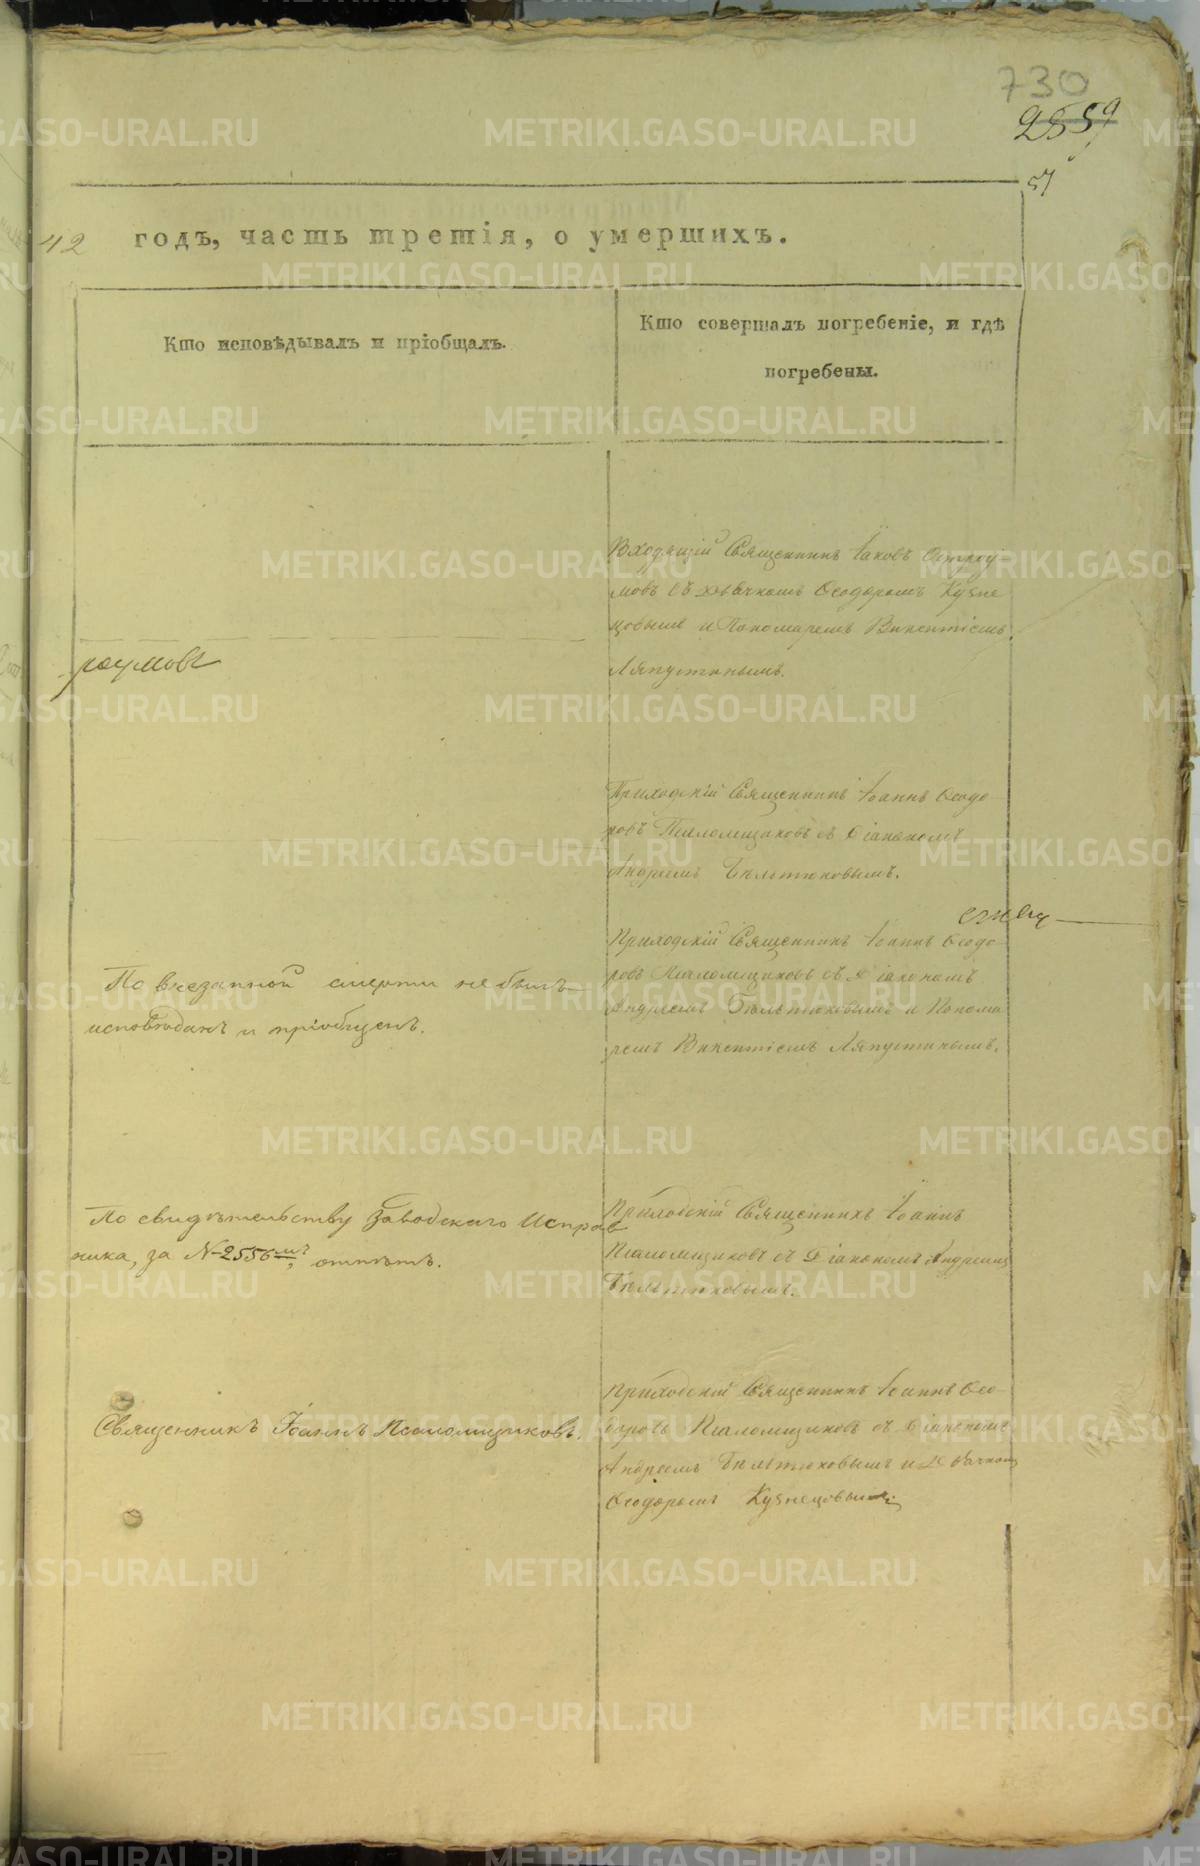 730
2859
51
42 годъ, часть третія, о умершихъ.
Кто исповѣдывалъ и пріобщалъ.
Кто совершалъ погребеніе, и гдѣ
погребены.
Входящій Священникъ Іаковъ Остроу-
мовъ съ дьячкомъ Ѳеодоромъ Кузне
цовымъ и Пономаремъ Викентіемъ
Ляпустинымъ.
роумовъ
Приходскій Священникъ Іоаннъ Ѳеодо
ровъ Псаломщиковъ съ Діакономъ
Андреемъ Бѣльтюковымъ.
Приходскій Священникъ Іоаннъ Ѳеодо
ровъ Псаломщиковъ съ Діакономъ
Андреемъ Бѣльтюковымъ и Понома
ремъ Викентіемъ Ляпустинымъ.
По внезапной смерти не былъ
исповѣданъ и пріобщенъ.
По свидѣтельству Заводскаго Исправ
ника, за №2556мъ, отпѣтъ.
Приходскій Священникъ Іоаннъ
Псаломщиковъ съ Діакономъ Андреемъ
Бѣльтюковымъ.
Священникъ Іоаннъ Псаломщиковъ.
Приходскій Священникъ Іоаннъ Ѳео-
доровъ Псаломщиковъ съ Діакономъ
Андреемъ Бѣльтюковымъ и Дьячкомъ
Ѳеодоромъ Кузнецовымъ.
METRIKI.GASO-URAL.RU